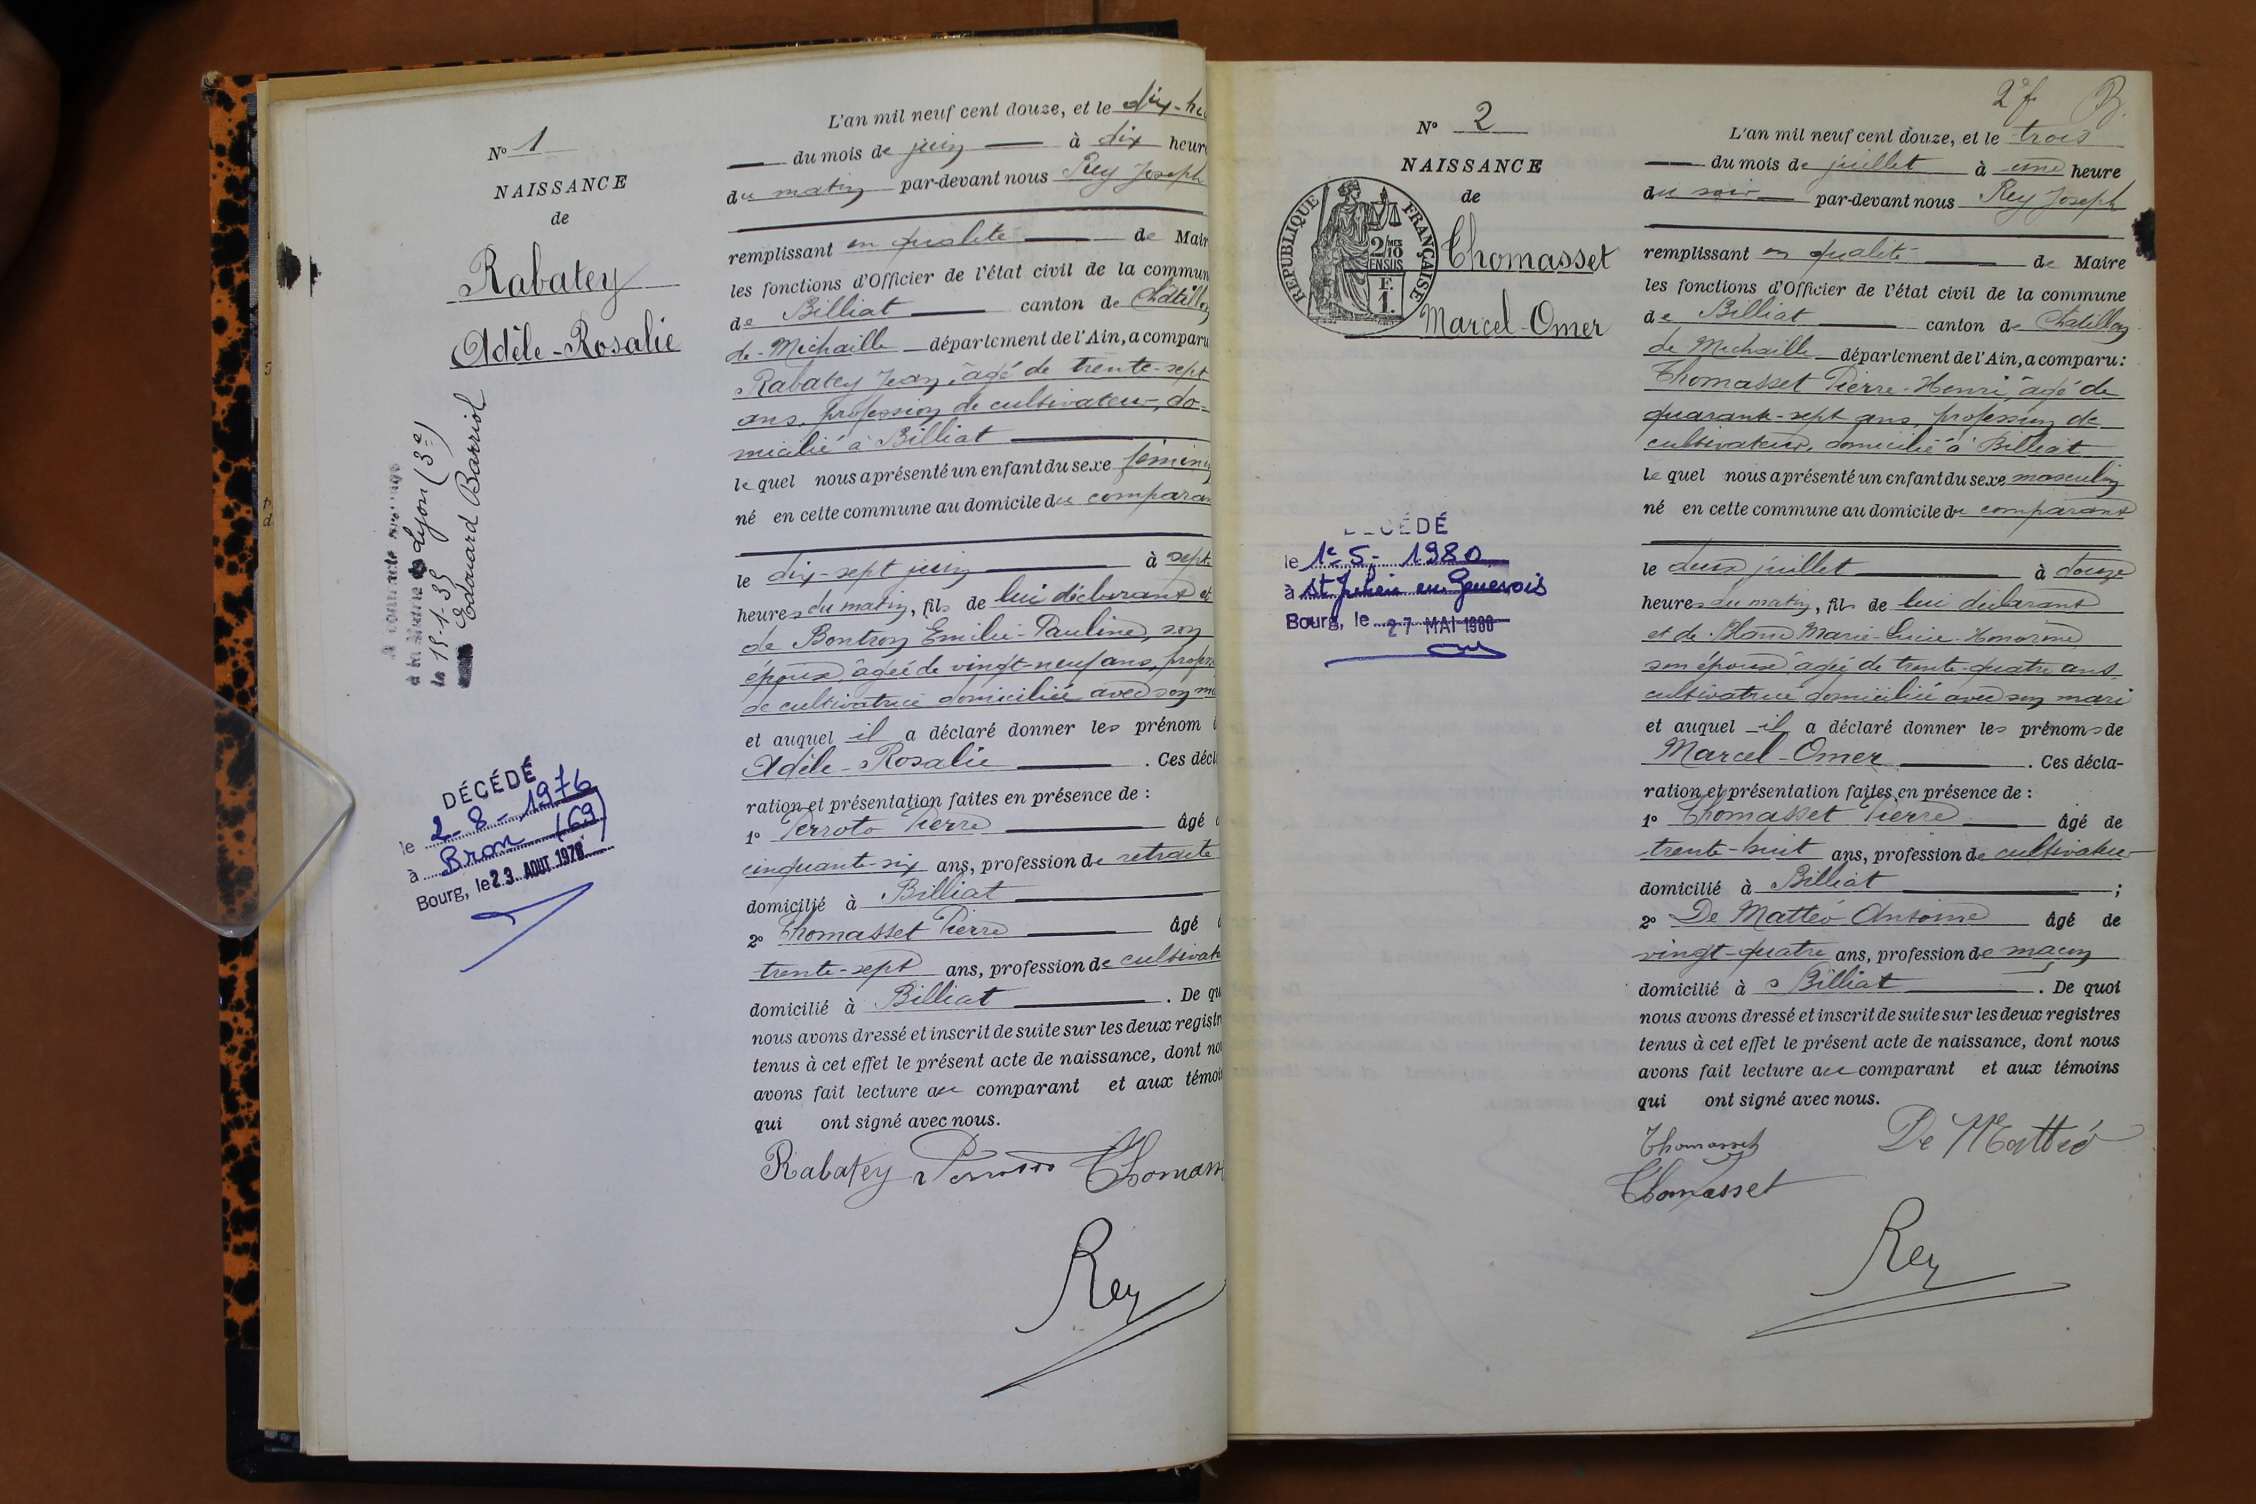 N° 1
NAISSANCE
de
Rabatey
Adèle-Rosalie
à la Mairie de Lyon (3e)
le 15-1-35
Edouard Barriol
DÉCÉDÉ
le 2-8-1976
à Bron (69)
Bourg, le 23 AOUT 1976
L'an mil neuf cent douze, et le dix-hu
du mois de juin à dix heure
du matin par-devant nous Rey Joseph
remplissant en qualité de Mair
les fonctions d'Officier de l'état civil de la commun
de Billiat canton de Châtillon
de-Michaille département de l'Ain, a comparu
Rabatey Jean, âgé de trente-sept
ans, profession de cultivateur, do-
micilié à Billiat
lequel nous a présenté un enfant du sexe féminin
né en cette commune au domicile du comparan
le dix-sept juin à sept
heures du matin, fils de lui déclarant et
de Bontron Emilie-Pauline, son
épouse, âgée de vingt-neuf ans, profess
de cultivatrice domiciliée avec son ma
et auquel il a déclaré donner les prénom
Adèle-Rosalie . Ces décl
ration et présentation faites en présence de :
1° Perroto Pierre âgé
cinquante-six ans, profession de retraité
domicilié à Billiat
2° Thomasset Pierre âgé
trente-sept ans, profession de cultivat
domicilié à Billiat . De qu
nous avons dressé et inscrit de suite sur les deux registr
tenus à cet effet le présent acte de naissance, dont no
avons fait lecture au comparant et aux témoi
qui ont signé avec nous.
Rabatey Thomass
Rey
2e f. B.
N° 2
NAISSANCE
de
Thomasset
Marcel-Omer
RÉPUBLIQUE FRANÇAISE
2/10 MES
EN SUS
F.
1.
DÉCÉDÉ
le 1e-5-1980
à St Julien en Genevois
Bourg, le 27 MAI 1980
L'an mil neuf cent douze, et le trois
du mois de juillet à une heure
du soir par-devant nous Rey Joseph
remplissant en qualité de Maire
les fonctions d'Officier de l'état civil de la commune
de Billiat canton de Chatillon
de Michaille département de l'Ain, a comparu :
Thomasset Pierre-Henri, âgé de
quarante-sept ans, profession de
cultivateur, domicilié à Billiat
lequel nous a présenté un enfant du sexe masculin
né en cette commune au domicile du comparant
le deux juillet à douze
heures du matin, fils de lui déclarant
et de Blanc Marie-Lucie-Honorine
son épouse âgée de trente-quatre ans,
cultivatrice domiciliée avec son mari
et auquel il a déclaré donner les prénoms de
Marcel-Omer . Ces décla-
ration et présentation faites en présence de :
1° Thomasset Pierre âgé de
trente-huit ans, profession de cultivateur
domicilié à Billiat ;
2° De Mattéo Antoine âgé de
vingt-quatre ans, profession de maçon
domicilié à Billiat . De quoi
nous avons dressé et inscrit de suite sur les deux registres
tenus à cet effet le présent acte de naissance, dont nous
avons fait lecture au comparant et aux témoins
qui ont signé avec nous.
Thomasset De Mattéo
Thomasset
Rey